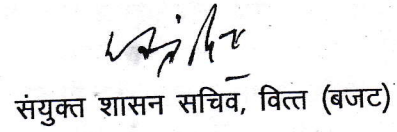 संयुक्त शासन सचिव, वित्त (बजट)